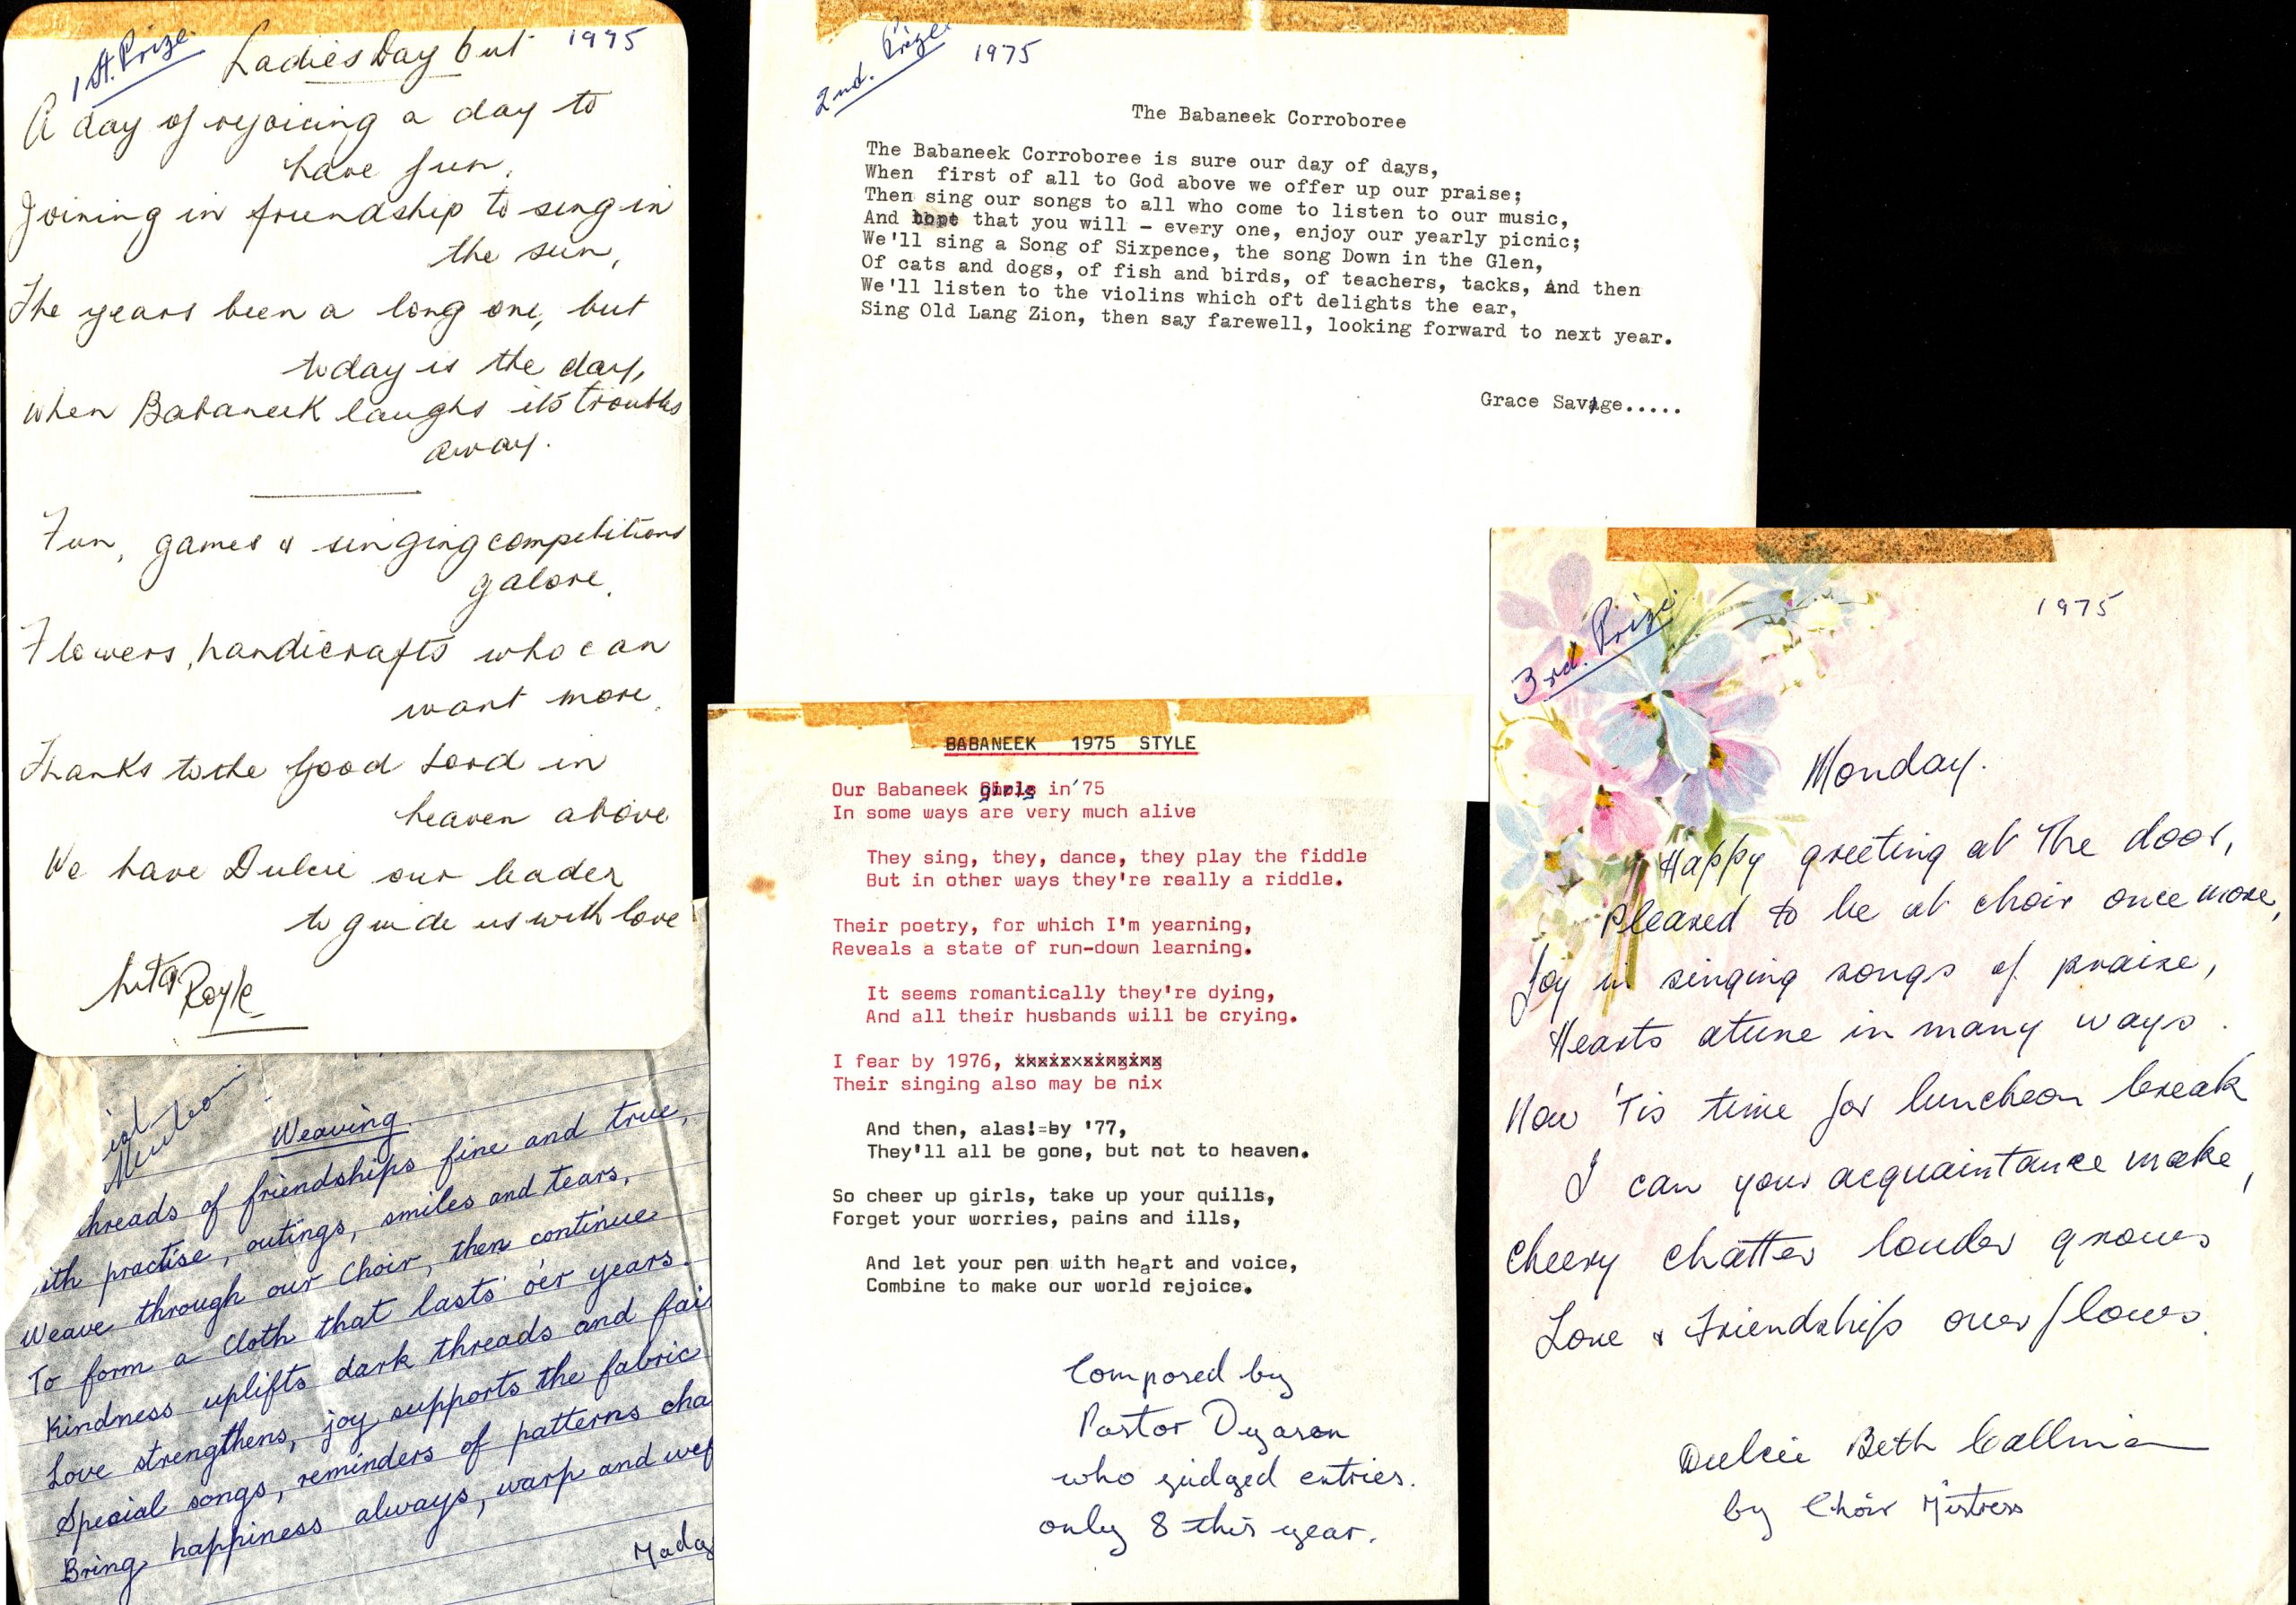 1st. Prize.
Ladies Day out 1975
A day of rejoicing a day to
have fun,
Joining in friendship to sing in
the sun,
The years been a long one, but
today is the day,
when Babaneek laughs its troubles
away.
Fun, games & singing competitions
galore,
Flowers, handicrafts who can
want more,
Thanks to the Good Lord in
heaven above
We have Dulcie our leader
to guide us with love
Royle
2nd. Prize.
1975
The Babaneek Corroboree
The Babaneek Corroboree is sure our day of days,
When first of all to God above we offer up our praise;
Then sing our songs to all who come to listen to our music,
And hope that you will - every one, enjoy our yearly picnic;
We'll sing a Song of Sixpence, the song Down in the Glen,
Of cats and dogs, of fish and birds, of teachers, tacks, And then
We'll listen to the violins which oft delights the ear,
Sing Old Lang Zion, then say farewell, looking forward to next year.
Grace Savage.....
3rd. Prize.
1975
Monday.
Happy greeting at the door,
Pleased to be at choir once more,
Joy in singing songs of praise,
Hearts atune in many ways.
Now 'Tis time for luncheon break
I can your acquaintance make,
Cheery chatter louder grows
Love & Friendship overflows.
Dulcie Beth
by Choir Mistress
BABANEEK 1975 STYLE
Our Babaneek girls in '75
In some ways are very much alive
They sing, they, dance, they play the fiddle
But in other ways they're really a riddle.
Their poetry, for which I'm yearning,
Reveals a state of run-down learning.
It seems romantically they're dying,
And all their husbands will be crying.
I fear by 1976, their singing
Their singing also may be nix
And then, alas!=by '77,
They'll all be gone, but not to heaven.
So cheer up girls, take up your quills,
Forget your worries, pains and ills,
And let your pen with heart and voice,
Combine to make our world rejoice.
Composed by
Pastor Dyason
who judged entries.
only 8 this year.
Weaving.
hreads of friendships fine and true,
ith practise, outings, smiles and tears,
Weave through our Choir, then continue
To form a cloth that lasts o'er years.
Kindness uplifts dark threads and fai
Love strengthens, joy supports the fabric
Special songs, reminders of patterns cha
Bring happiness always, warp and wef
Madg